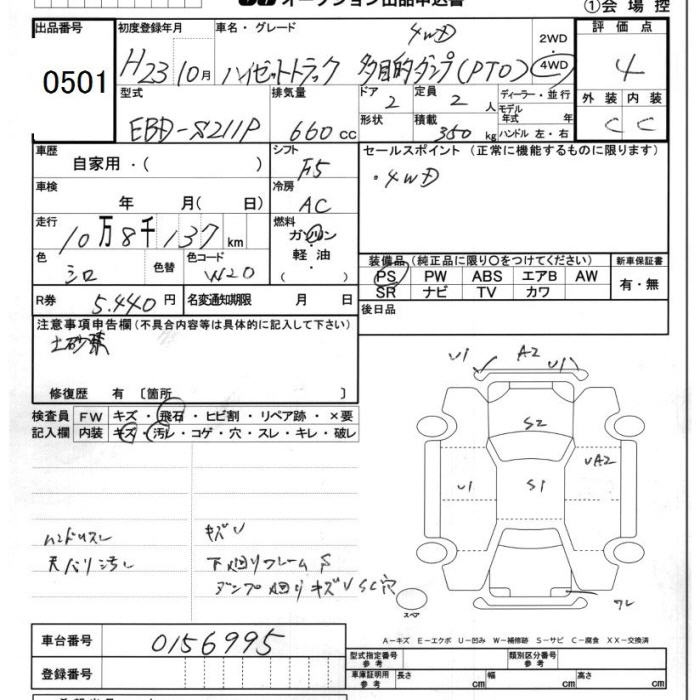 オークション出品申込書
①会場控
出品番号
0501
初度登録年月
H23 10月
車名・グレード
4WD
ハイゼットトラック 多目的ダンプ(PTO)
2WD
4WD
評価点
4
外装 内装
C C
型式
EBD-S211P
排気量
660cc
ドア
2
定員
2人
ディーラー・並行
モデル年式 年
形状
積載
350kg
ハンドル 左・右
車歴
自家用・( )
シフト
F5
セールスポイント(正常に機能するものに限ります)
・4WD
車検
年 月( 日)
冷房
AC
走行
10万8千137km
燃料
ガソリン・軽油・( )
色
シロ
色替
色コード
W20
装備品(純正品に限り○をつけてください)
PS PW ABS エアB AW
SR ナビ TV カワ
新車保証書
有・無
R券
5.440円
名変通知期限 月 日
後日品
注意事項申告欄(不具合内容等は具体的に記入して下さい)
土砂禁
修復歴 有〔箇所 〕
検査員記入欄
FW キズ・飛石・ヒビ割・リペア跡・×要
内装 キズ・汚レ・コゲ・穴・スレ・キレ・破レ
ハンドルスレ
天バリ汚レ
キズU
下廻りフレームS
ダンプ廻りキズUSC穴
U1 A2 U1
S2
U1 S1 UA2
ワレ
スペア
A-キズ E-エクボ U-凹み W-補修跡 S-サビ C-腐食 XX-交換済
車台番号
0156995
登録番号
型式指定番号 参考
類別区分番号 参考
車庫証明用 参考
長さ cm 幅 cm 高さ cm